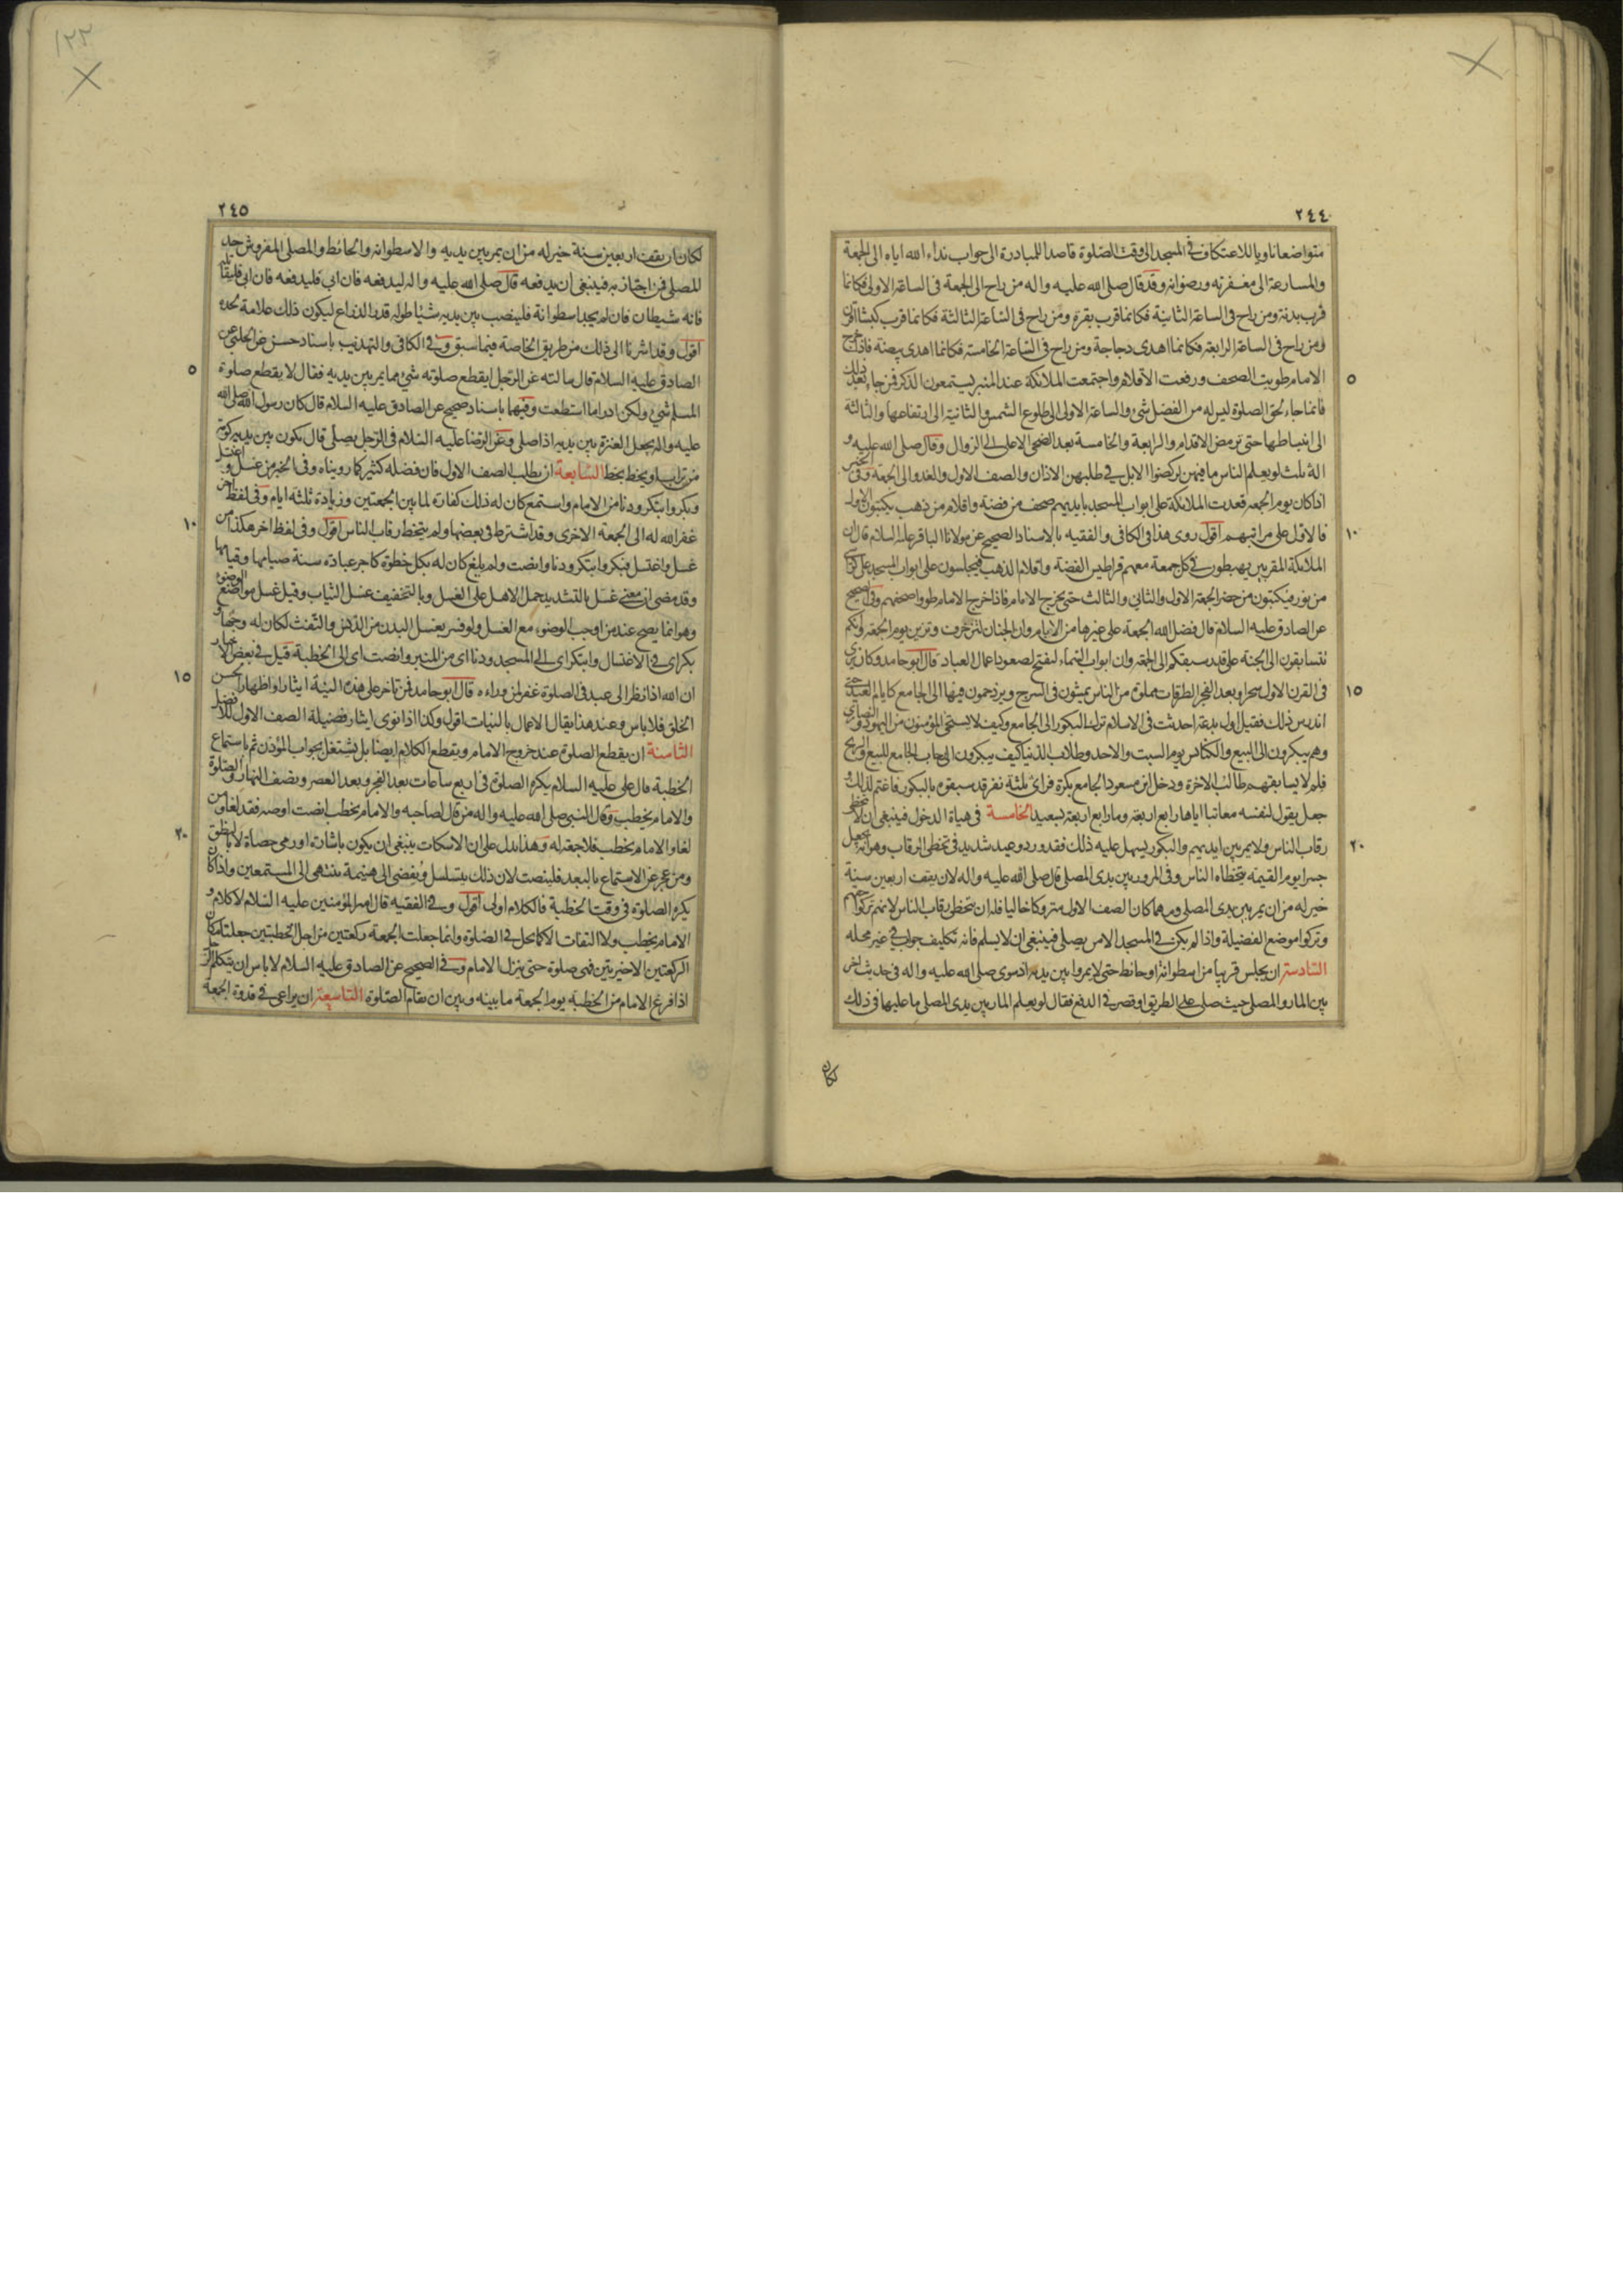 ٢٤٤
متواضعا ناويا للاعتكاف في المسجد الى وقت الصلوة قاصدا للمبادرة الى جواب نداء الله اياه الى الجمعة
والمسارعة الى مغفرته ورضوانه وقد قال صلى الله عليه واله من راح الى الجمعة في الساعة الاولى فكانما
قرب بدنة ومن راح في الساعة الثانية فكانما قرب بقرة ومن راح في الساعة الثالثة فكانما قرب كبشا اقرن
ومن راح في الساعة الرابعة فكانما اهدى دجاجة ومن راح في الساعة الخامسة فكانما اهدى بيضة فاذا خرج
٥
الامام طويت الصحف ورفعت الاقلام واجتمعت الملائكة عند المنبر يستمعون الذكر فمن جاء بعد ذلك
فانما جاء لحق الصلوة ليس له من الفضل شئ والساعة الاولى الى طلوع الشمس والثانية الى ارتفاعها والثالثة
الى انبساطها حتى ترمض الاقدام والرابعة والخامسة بعد الضحى الاعلى الى الزوال وقال صلى الله عليه و
اله ثلث لو يعلم الناس ما فيهن لركضوا الابل في طلبهن الاذان والصف الاول والغدو الى الجمعة وفي الخبر
اذا كان يوم الجمعة قعدت الملائكة على ابواب المسجد بايديهم صحف من فضة واقلام من ذهب يكتبون الاول
١٠
فالاول على مراتبهم اقول روى هذا في الكافي والفقيه بالاسناد الصحيح عن مولانا الباقر عليه السلام قال ان
الملائكة المقربين يهبطون في كل جمعة معهم قراطيس الفضة واقلام الذهب فيجلسون على ابواب المسجد على كراسي
من نور فيكتبون من حضر الجمعة الاول والثاني والثالث حتى يخرج الامام فاذا خرج الامام طووا صحفهم وفي الصحيح
عن الصادق عليه السلام قال فضل الله الجمعة على غيرها من الايام وان الجنان لتزخرف وتزين يوم الجمعة وانكم
تتسابقون الى الجنة على قدر سبقكم الى الجمعة وان ابواب السماء لتفتح لصعود اعمال العباد قال ابو حامد وكان يرى
١٥
في القرن الاول سحرا وبعد الفجر الطرقات مملوة من الناس يمشون في السرج ويزدحمون فيها الى الجامع كايام العيد حتى
اندرس ذلك فقيل اول بدعة احدثت في الاسلام ترك البكور الى الجامع وكيف لا يستحيي المؤمنون من اليهود والنصارى
وهم يبكرون الى البيع والكنائس يوم السبت والاحد وطلاب الدنيا كيف يبكرون الى رحاب الجامع للبيع والربح
فلم لا يسابقهم طالب الاخرة ودخل ابن مسعود الجامع بكرة فراى ثلثة نفر قد سبقوه بالبكور فاغتم لذلك و
جعل يقول لنفسه معاتبا اياها رابع اربعة وما رابع اربعة ببعيد الخامسة في هياة الدخول فينبغي ان لا يتخطى
٢٠
رقاب الناس ولا يمر بين ايديهم والبكور يسهل عليه ذلك فقد ورد وعيد شديد في تخطي الرقاب وهو انه يجعل
جسرا يوم القيمة يتخطاه الناس وفي المرور بين يدى المصلي قال صلى الله عليه واله لان يقف اربعين سنة
خير له من ان يمر بين يدى المصلي ومهما كان الصف الاول متروكا خاليا فله ان يتخطى رقاب الناس لانهم تركوا حقهم
وتركوا موضع الفضيلة واذا لم يكن في المسجد الا من يصلي فينبغي ان لا يسلم فانه تكليف جواب في غير محله
السادسة ان يجلس قريبا من اسطوانة او حائط حتى لا يمروا بين يديه ادسوى صلى الله عليه واله في حديث اخر
بين المار والمصلي حيث صلى على الطريق او قصر في الدفع فقال لو يعلم المار بين يدى المصلي ما عليهما في ذلك
لكان
٢٤٥
لكان ان يقف اربعين سنة خير له من ان يمر بين يديه والاسطوانة والحائط والمصلى المفروش حد
للمصلي فمن اجتاز به فينبغي ان يدفعه قال صلى الله عليه واله ليدفعه فان ابى فليدفعه فان ابى فليقاتله
فانه شيطان فان لم يجد اسطوانة فلينصب بين يديه شيئا طوله قدر الذراع ليكون ذلك علامة لحده
اقول وقد اشرنا الى ذلك من طريق الخاصة فيما سبق وفي الكافي والتهذيب باسناد حسن عن الحلبي عن
٥
الصادق عليه السلام قال سالته عن الرجل ايقطع صلوته شئ مما يمر بين يديه فقال لا يقطع صلوة
المسلم شئ ولكن ادرا ما استطعت وفيهما باسناد صحيح عن الصادق عليه السلام قال كان رسول الله صلى الله
عليه واله يجعل العنزة بين يديه اذا صلى وعن الرضا عليه السلام في الرجل يصلي قال يكون بين يديه كومة
من تراب او يخط بخط السابعة ان يطلب الصف الاول فان فضله كثير كما رويناه وفي الخبر من غسل واغتسل
وبكر وابتكر ودنا من الامام واستمع كان له ذلك كفارة لما بين الجمعتين وزيادة ثلثة ايام وفي لفظ اخر
١٠
غفر الله له الى الجمعة الاخرى وقد اشترط في بعضها ولم يتخط رقاب الناس اقول وفي لفظ اخر هكذا من
غسل واغتسل فبكر وابتكر ودنا وانصت ولم يلغ كان له بكل خطوة كاجر عبادة سنة صيامها وقيامها
وقد مضى ان معنى غسل بالتشديد حمل الاهل على الغسل وبالتخفيف غسل الثياب وقيل غسل مواضع الوضوء
وهو انما يصح عند من اوجب الوضوء مع الغسل ولو فسر بغسل البدن من الدرن والتفث لكان له وجها و
بكر اى في الاغتسال وابتكر اى الى المسجد ودنا اى من المنبر وانصت اى الى الخطبة قيل في بعض الاخبار
١٥
ان الله اذا نظر الى عبد في الصلوة غفر لمن وراءه قال ابو حامد فمن تاخر على هذه النية ايثارا واظهارا لحسن
الخلق فلا باس وعند هذا يقال الاعمال بالنيات اقول وكذا اذا نوى ايثار فضيلة الصف الاول للافضل
الثامنة ان يقطع الصلوة عند خروج الامام ويقطع الكلام ايضا بل يشتغل بجواب المؤذن ثم باستماع
الخطبة قال على عليه السلام يكره الصلوة في اربع ساعات بعد الفجر وبعد العصر ونصف النهار والصلوة
والامام يخطب وقال النبي صلى الله عليه واله من قال لصاحبه والامام يخطب انصت او صه فقد لغا ومن
٢٠
لغا والامام يخطب فلا جمعة له وهذا يدل على ان الاسكات ينبغي ان يكون باشارة او رمي حصاة لا بالنطق
ومن عجز عن الاستماع بالبعد فلينصت لان ذلك يتسلسل ويفضي الى هينمة تنتهي الى المستمعين واذا كان
يكره الصلوة في وقت الخطبة فالكلام اولى اقول وفي الفقيه قال امير المؤمنين عليه السلام لا كلام و
الامام يخطب ولا التفات الا كما يحل في الصلوة وانما جعلت الجمعة ركعتين من اجل الخطبتين جعلتا مكان
الركعتين الاخيرتين فهي صلوة حتى ينزل الامام وفي الصحيح عن الصادق عليه السلام لا باس ان يتكلم الرجل
اذا فرغ الامام من الخطبة يوم الجمعة ما بينه وبين ان يقام الصلوة التاسعة ان يراعى في قدوة الجمعة
١٢٢